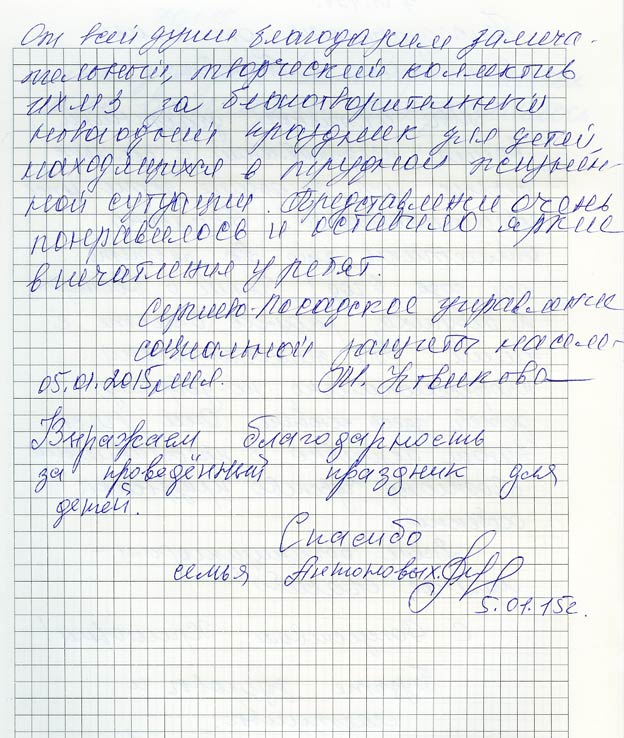 От всей души благодарим замеча-
тельный, творческий коллектив
за благотворительный
новогодний праздник для детей
находящихся в трудной жизнен-
ной ситуации. Представление очень
понравилось и оставило яркие
впечатления у ребят.
Сергиево-Посадское управление
социальной защиты населе-
05.01.2015 ния.
Выражаем благодарность
за проведённый праздник для
детей.
Спасибо
семья Антоновых.
5.01.15г.